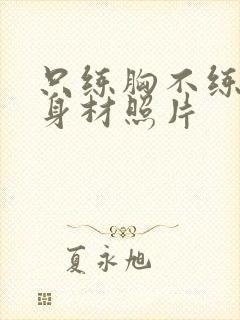 只练胸不练
身材照片
夏永旭